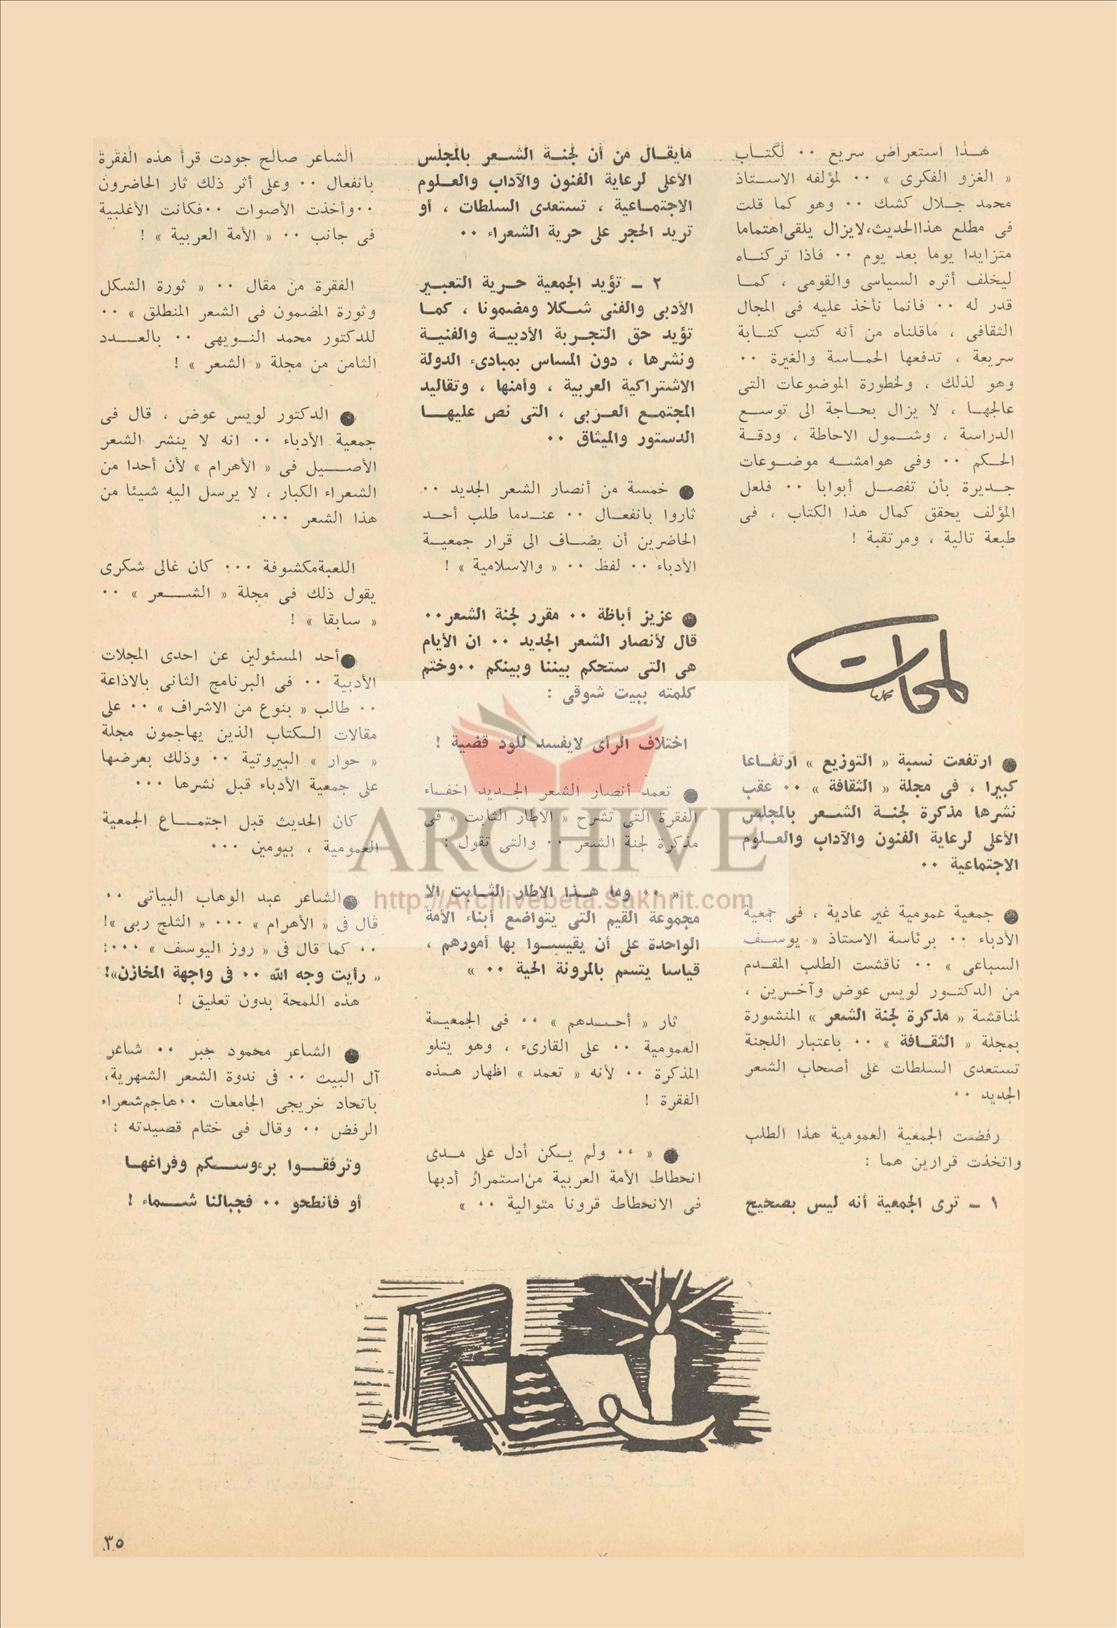 هـذا استعراض سريع ٠٠ لكتـاب
« الغزو الفكرى » ٠٠ لمؤلفه الاسـتاذ
محمد جـلال كشك ٠٠ وهو كما قلت
فى مطلع هذا الحديث، لايزال يلقى اهتماما
متزايدا يوما بعد يوم ٠٠ فاذا تركنـاه
ليخلف أثره السياسى والقومى ، كمـا
قدر له ٠٠ فانما نأخذ عليه فى المجال
الثقافى ، ماقلناه من أنه كتب كتـابة
سريعة ، تدفعها الحمـاسة والغيرة ٠٠
وهو لذلك ، ولخطورة الموضوعات التى
عالجهـا ، لا يزال بحـاجة الى توسـع
الدراسة ، وشـمول الاحاطة ، ودقـة
الحـكم ٠٠ وفى هوامشـه موضـوعات
جـديرة بأن تفصـل أبوابا ٠٠ فلعل
المؤلف يحقق كمال هذا الكتاب ، فى
طبعة تالية ، ومرتقبة !
لمحات
● ارتفعت نسبة « التوزيع » ارتفـاعا
كبيرا ، فى مجلة « الثقافة » ٠٠ عقب
نشرها مذكرة لجنـة الشـعر بالمجلس
الأعلى لرعاية الفنون والآداب والعـلوم
الاجتماعية ٠٠
● جمعية عمومية غير عادية ، فى جمعية
الأدباء ٠٠ برئاسة الاستاذ « يوسـف
السباعى » ٠٠ ناقشت الطلب المقـدم
من الدكتـور لويس عوض وآخـرين ،
لمناقشة « مذكرة لجنة الشعر » المنشورة
بمجلة « الثقـافة » ٠٠ باعتبار اللجنة
تستعدى السلطات على أصحاب الشعر
الجديد ٠٠
رفضت الجمعية العمومية هذا الطلب
واتخذت قرارين هما :
١ ـ ترى الجمعية أنه ليس بصحيح
مايقـال من أن لجنـة الشـعر بالمجلس
الأعلى لرعاية الفنون والآداب والعـلوم
الاجتمـاعية ، تستعدى السلطات ، أو
تريد الحجر على حرية الشعراء ٠٠
٢ ـ تؤيد الجمعية حـرية التعبـير
الأدبى والفنى شـكلا ومضمونا ، كمـا
تؤيد حق التجـربة الأدبيـة والفنيـة
ونشرها ، دون المساس بمبادىء الدولة
الاشتراكية العربية ، وأمنها ، وتقاليد
المجتمع العـربى ، التى نص عليهـا
الدستور والميثاق ٠٠
● خمسة من أنصار الشعر الجديد ٠٠
ثاروا بانفعـال ٠٠ عنـدما طلب أحـد
الحاضرين أن يضـاف الى قرار جمعيـة
الأدباء ٠٠ لفظ ٠٠ « والاسلامية » !
● عزيز أباظة ٠٠ مقرر لجنة الشعر٠٠
قال لأنصار الشعر الجديد ٠٠ ان الأيام
هى التى ستحكم بيننا وبينكم ٠٠وختم
كلمته ببيت شوقى :
اختلاف الرأى لايفسد للود قضية !
● تعمد أنصار الشعر الجـديد اخفـاء
الفقرة التى تشرح « الاطار الثابت » فى
مذكرة لجنة الشعر ٠٠ والتى تقول :
« ٠٠ وما هـذا الاطار الثـابت الا
مجموعة القيم التى يتواضع أبناء الأمة
الواحدة على أن يقيسـوا بها أمورهم ،
قياسا يتسم بالمرونة الحية ٠٠ »
ثار « أحـدهم » ٠٠ فى الجمعيـة
العمومية ٠٠ على القارىء ، وهو يتلو
المذكرة ٠٠ لأنه « تعمد » اظهار هـذه
الفقرة !
● « ٠٠ ولم يـكن أدل على مـدى
انحطاط الأمة العربية من استمرار أدبها
فى الانحطاط قرونا متوالية ٠٠ »
الشاعر صالح جودت قرأ هذه الفقرة
بانفعال ٠٠ وعلى أثر ذلك ثار الحاضرون
٠٠وأخذت الأصوات ٠٠فكانت الأغلبية
فى جانب ٠٠ « الأمة العربية » !
الفقرة من مقال ٠٠ « ثورة الشكل
وثورة المضمون فى الشعر المنطلق » ٠٠
للدكتور محمد النـويهى ٠٠ بالعـدد
الثامن من مجلة « الشعر » !
● الدكتور لويس عوض ، قال فى
جمعية الأدباء ٠٠ انه لا ينشر الشعر
الأصـيل فى « الأهرام » لأن أحدا من
الشعراء الكبار ، لا يرسل اليه شيئا من
هذا الشعر ٠٠٠
اللعبة مكشوفة ٠٠٠ كان غالى شكرى
يقول ذلك فى مجلة « الشـعر » ٠٠
« سابقا » !
● أحد المسئولين عن احدى المجلات
الأدبية ٠٠ فى البرنامج الثانى بالاذاعة
٠٠ طالب « بنوع من الاشراف » ٠٠ على
مقالات الـكتاب الذين يهاجمون مجلة
« حوار » البيروتية ٠٠ وذلك بعرضها
على جمعية الأدباء قبل نشرها ٠٠٠
كان الحديث قبل اجتمـاع الجمعية
العمومية ، بيومين ٠٠٠
● الشاعر عبد الوهاب البياتى ٠٠
قال فى « الأهرام » ٠٠٠ « الثلج ربى »!
٠٠ كما قال فى « روز اليوسف » ٠٠٠!
« رأيت وجه الله ٠٠ فى واجهة المخازن»!
هذه اللمحة بدون تعليق !
● الشاعر محمود جبر ٠٠ شاعر
آل البيت ٠٠ فى ندوة الشعر الشهرية،
باتحاد خريجى الجامعات ٠٠هاجم شعراء
الرفض ٠٠ وقال فى ختام قصيدته :
وترفقـوا برءوسـكم وفراغهـا
أو فأنطحو ٠٠ فجبالنا شـماء !
ARCHIVE
http://Archivebeta.Sakhrit.com
٣٥